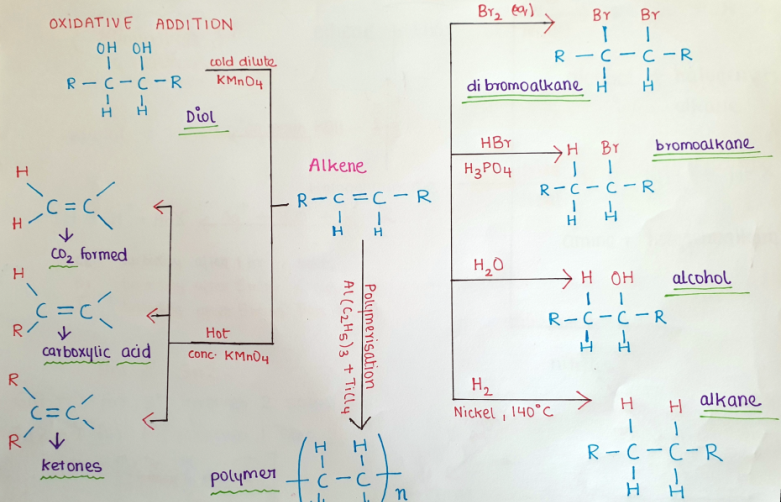 OXIDATIVE ADDITION
OH OH
R - C - C - R
H H
Diol
cold dilute
KMnO4
Alkene
R - C = C - R
H H
H
C = C
H
CO2 formed
H
C = C
R
carboxylic acid
R
C = C
R
ketones
Hot
conc. KMnO4
Polymerisation
Al(C2H5)3 + TiCl4
polymer
H H
( C - C )
n
Br2 (aq)
Br Br
R - C - C - R
H H
dibromoalkane
HBr
H3PO4
H Br
R - C - C - R
H H
bromoalkane
H2O
H OH
R - C - C - R
H H
alcohol
H2
Nickel, 140°C
H H
R - C - C - R
H H
alkane